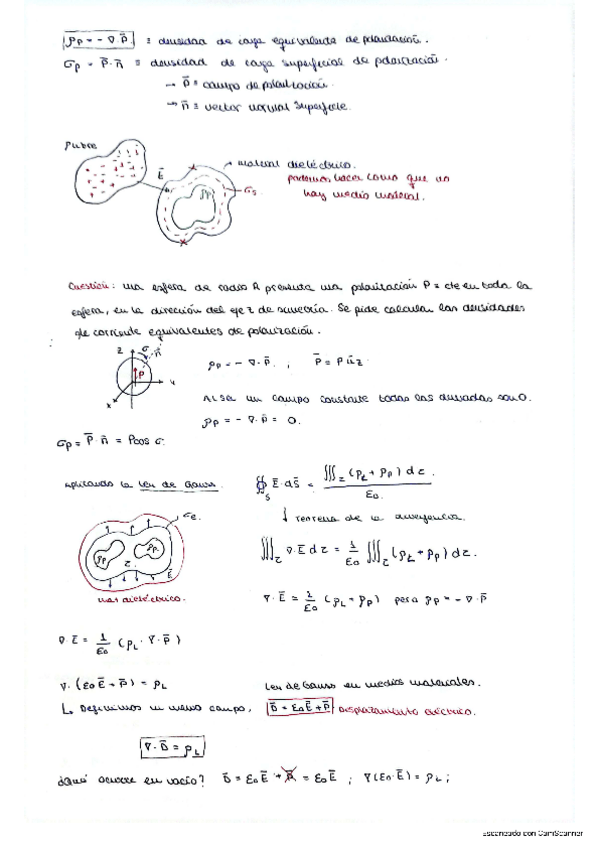 ρp = - ∇·P̄ ≡ densidad de carga equivalente de polarización.
σp = P̄·n̄ ≡ densidad de carga superficial de polarización.
→ P̄ ≡ campo de polarización
→ n̄ ≡ vector normal superficie.
ρlibre
Ē
material dieléctrico.
podemos hacer como que no
hay medio material.
ρp
σs
Cuestión: una esfera de radio R presenta una polarización P = cte en toda la
esfera, en la dirección del eje z de simetría. Se pide calcular las densidades
de corriente equivalentes de polarización.
z σ n̄
P
x y
ρp = - ∇·P̄ ; P̄ = P ūz
Al ser un campo constante todas las derivadas son 0.
ρp = - ∇·P̄ = 0.
σp = P̄·n̄ = P cos σ
aplicando la Ley de Gauss
∯s Ē·ds̄ = ∭τ (ρL + ρp) dτ / ε0
↓ teorema de la divergencia.
∭τ ∇·Ē dτ = 1/ε0 ∭τ (ρL + ρp) dτ.
ρp ρp τ Ē
mat dieléctrico.
∇·Ē = 1/ε0 (ρL + ρp) pero ρp = - ∇·P̄
∇·Ē = 1/ε0 (ρL - ∇·P̄)
∇·(ε0Ē + P̄) = ρL Ley de Gauss en medios materiales.
↳ Definimos un nuevo campo, D̄ = ε0Ē + P̄ Desplazamiento eléctrico.
∇·D̄ = ρL
¿Qué ocurre en vacío? D̄ = ε0Ē + P̄ = ε0Ē ; ∇(ε0·Ē) = ρL ;
Escaneado con CamScanner